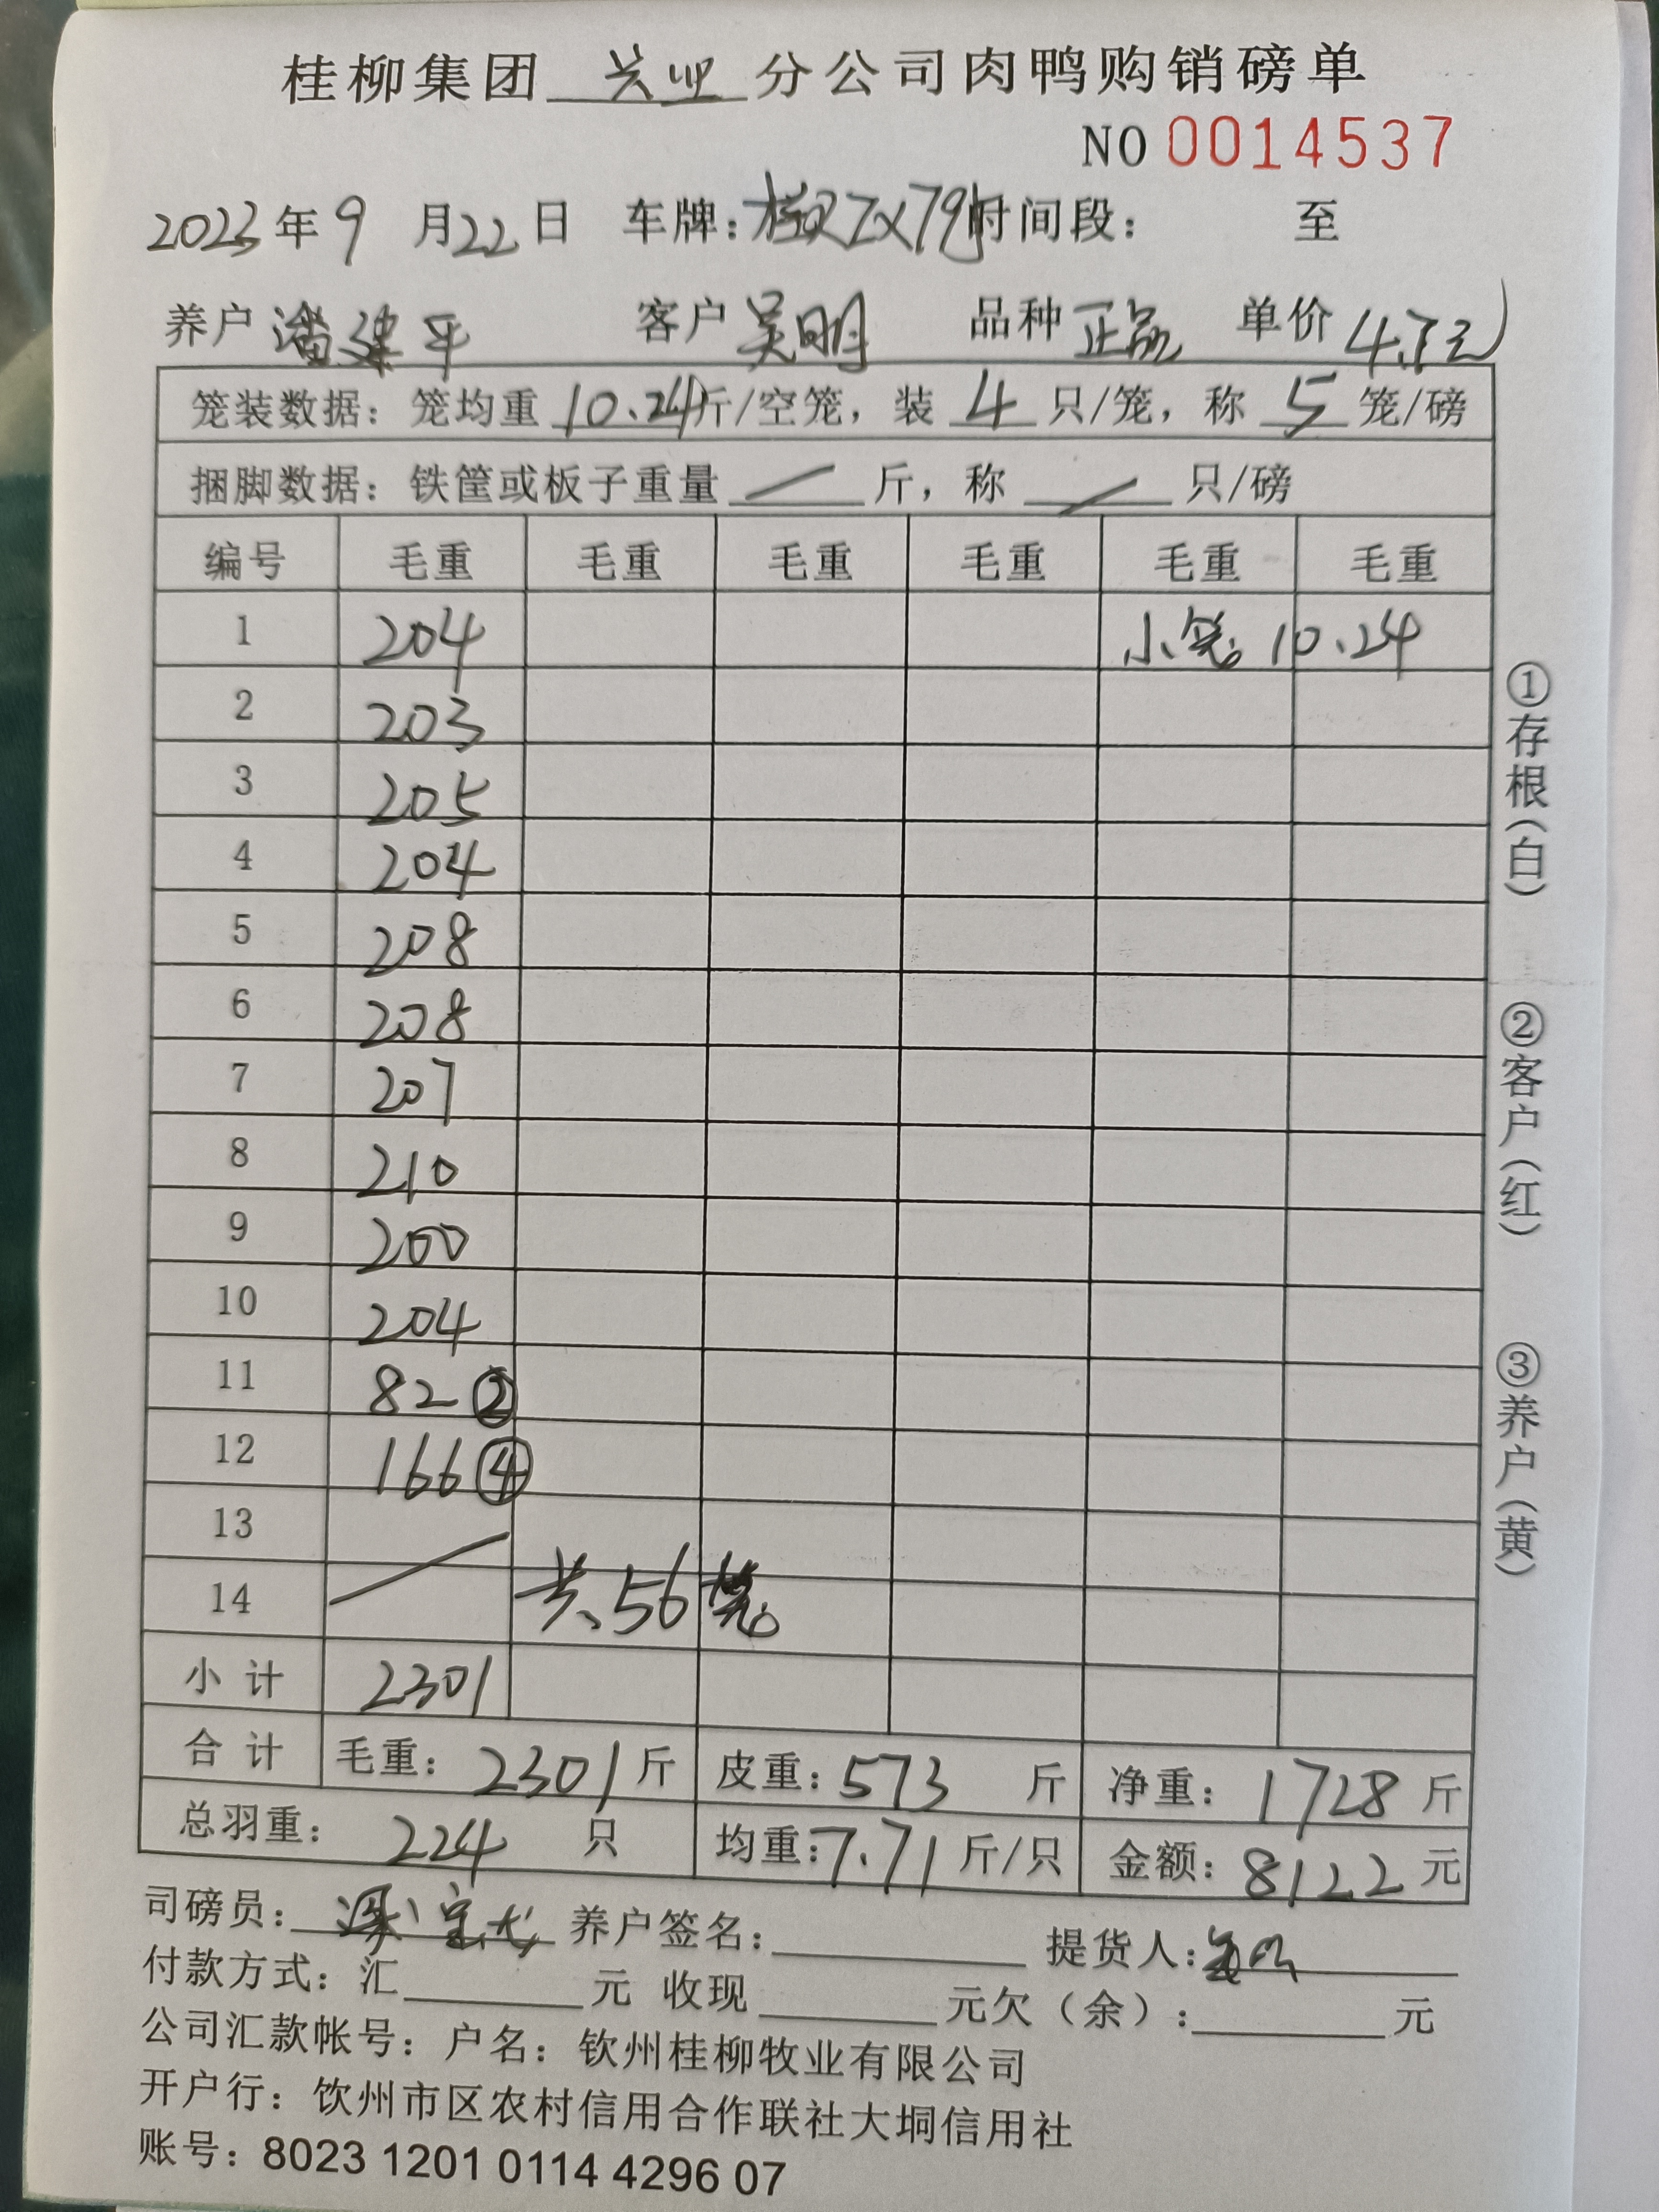 桂柳集团 兴业 分公司肉鸭购销磅单
NO 0014537
2023年9月22日 车牌: 时间段: 至
养户 潘建平 客户 吴明 品种 正品 单价
笼装数据: 笼均重 10.24 斤/空笼, 装 4 只/笼, 称 5 笼/磅
捆脚数据: 铁筐或板子重量 — 斤, 称 — 只/磅
编号 毛重 毛重 毛重 毛重 毛重 毛重
1 204 小笼 10.24
2 203
3 205
4 204
5 208
6 208
7 207
8 210
9 200
10 204
11 82 ②
12 166 ④
13
14 共56笼
小计 2301
合计 毛重: 2301斤 皮重: 573 斤 净重: 1728斤
总羽重: 224 只 均重: 7.71斤/只 金额: 8122元
司磅员: 养户签名: 提货人:
付款方式: 汇 元 收现 元欠(余): 元
公司汇款帐号: 户名: 钦州桂柳牧业有限公司
开户行: 钦州市区农村信用合作联社大垌信用社
账号: 8023 1201 0114 4296 07
①存根(白)
②客户(红)
③养户(黄)